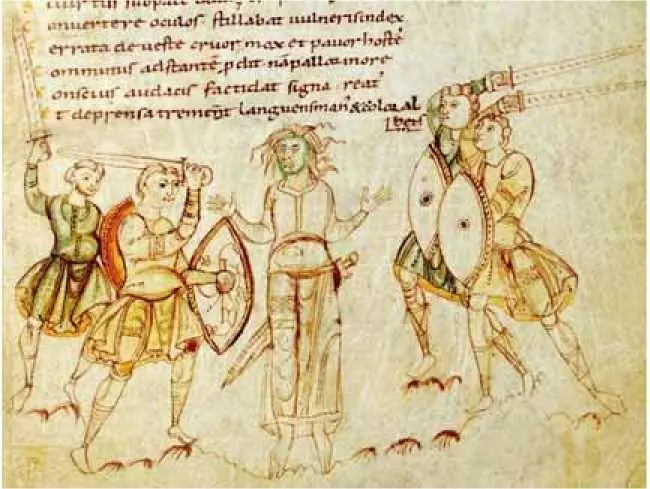 onuertere oculos stillabat uulneris index
errata de ueste cruor mox et pauor hostē
omminus adstantē ꝓdit nā pallor inore
onscius audacis facti dat signa reat᾿
t deprensa tremit languens man᾿ & color al
bens